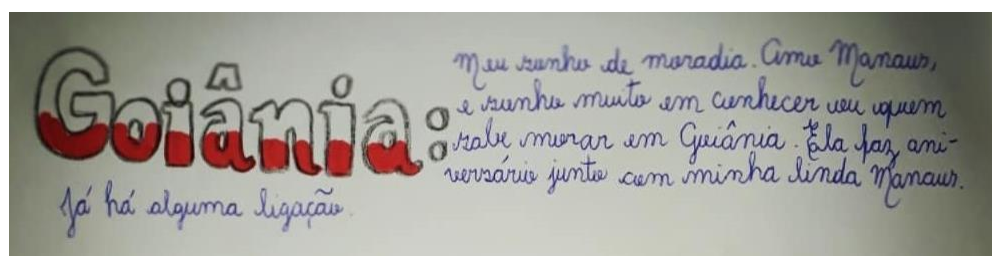 Goiânia:
Meu sonho de moradia. Amo Manaus,
e sonho muito em conhecer ou quem
sabe morar em Goiânia. Ela faz ani-
versário junto com minha linda Manaus.
Já há alguma ligação.